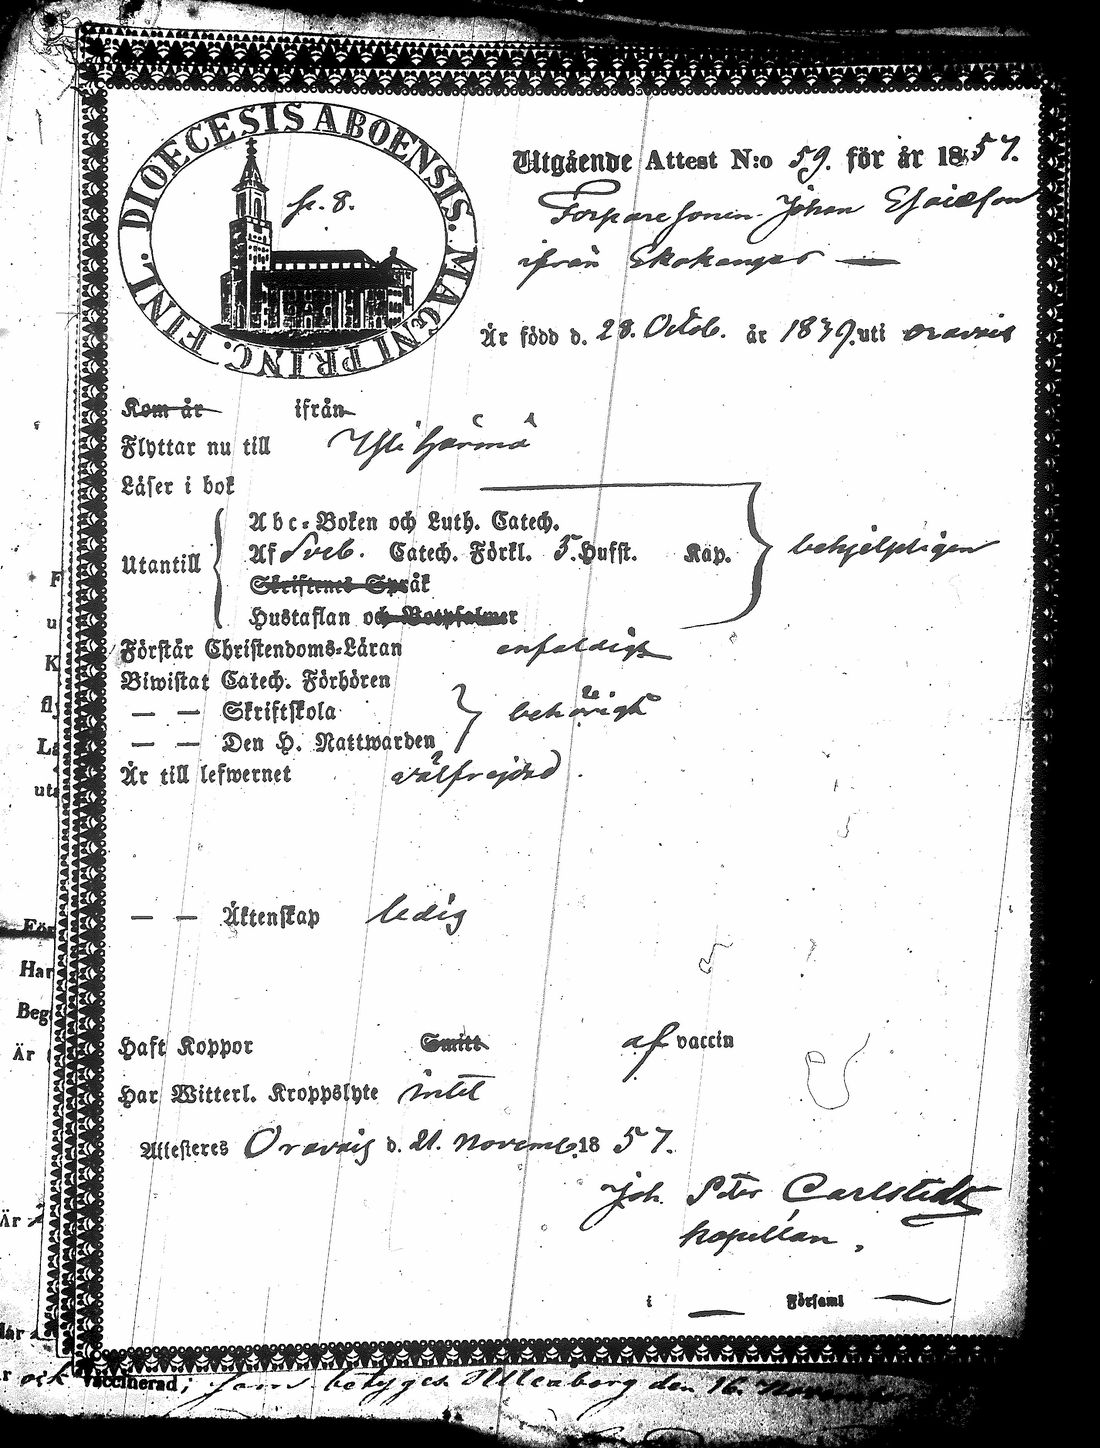 DIOECESIS ABOENSIS. MAGNI PRINC. FINL.
fr. 8.
Utgående Attest N:o 59. för år 1857.
Torparesonen Johan Esaiesson
ifrån Skokanger —
Är född d. 28. Octob. år 1839. uti Oravais
Kom år ifrån
Flyttar nu till Ylihärmä
Läser i bok
Abc-Boken och Luth. Catech.
Utantill Af Sveb. Catech. Förkl. 5. Hufst. Kap. behjelpligen
Skriftenes Språk
Hustaflan och Botpsalmer
Förstår Christendoms-Läran enfaldigt
Biwistat Catech. Förhören
— — Skriftskola behörigt
— — Den H. Nattwarden
Är till lefwernet välfrejdad.
— — Äktenskap ledig
Haft Koppor Smitt af vaccin
Har Witterl. Kroppslyte intet
Attesteres Oravais d. 21. Novemb. 1857.
Joh. Peter Carlstedt
Kapellan,
i — Församl —
F
u
K
fl
Lä
uta
För
Har
Beg
Är
Är
Har
r ock Vaccinerad; som betygas den 16. November